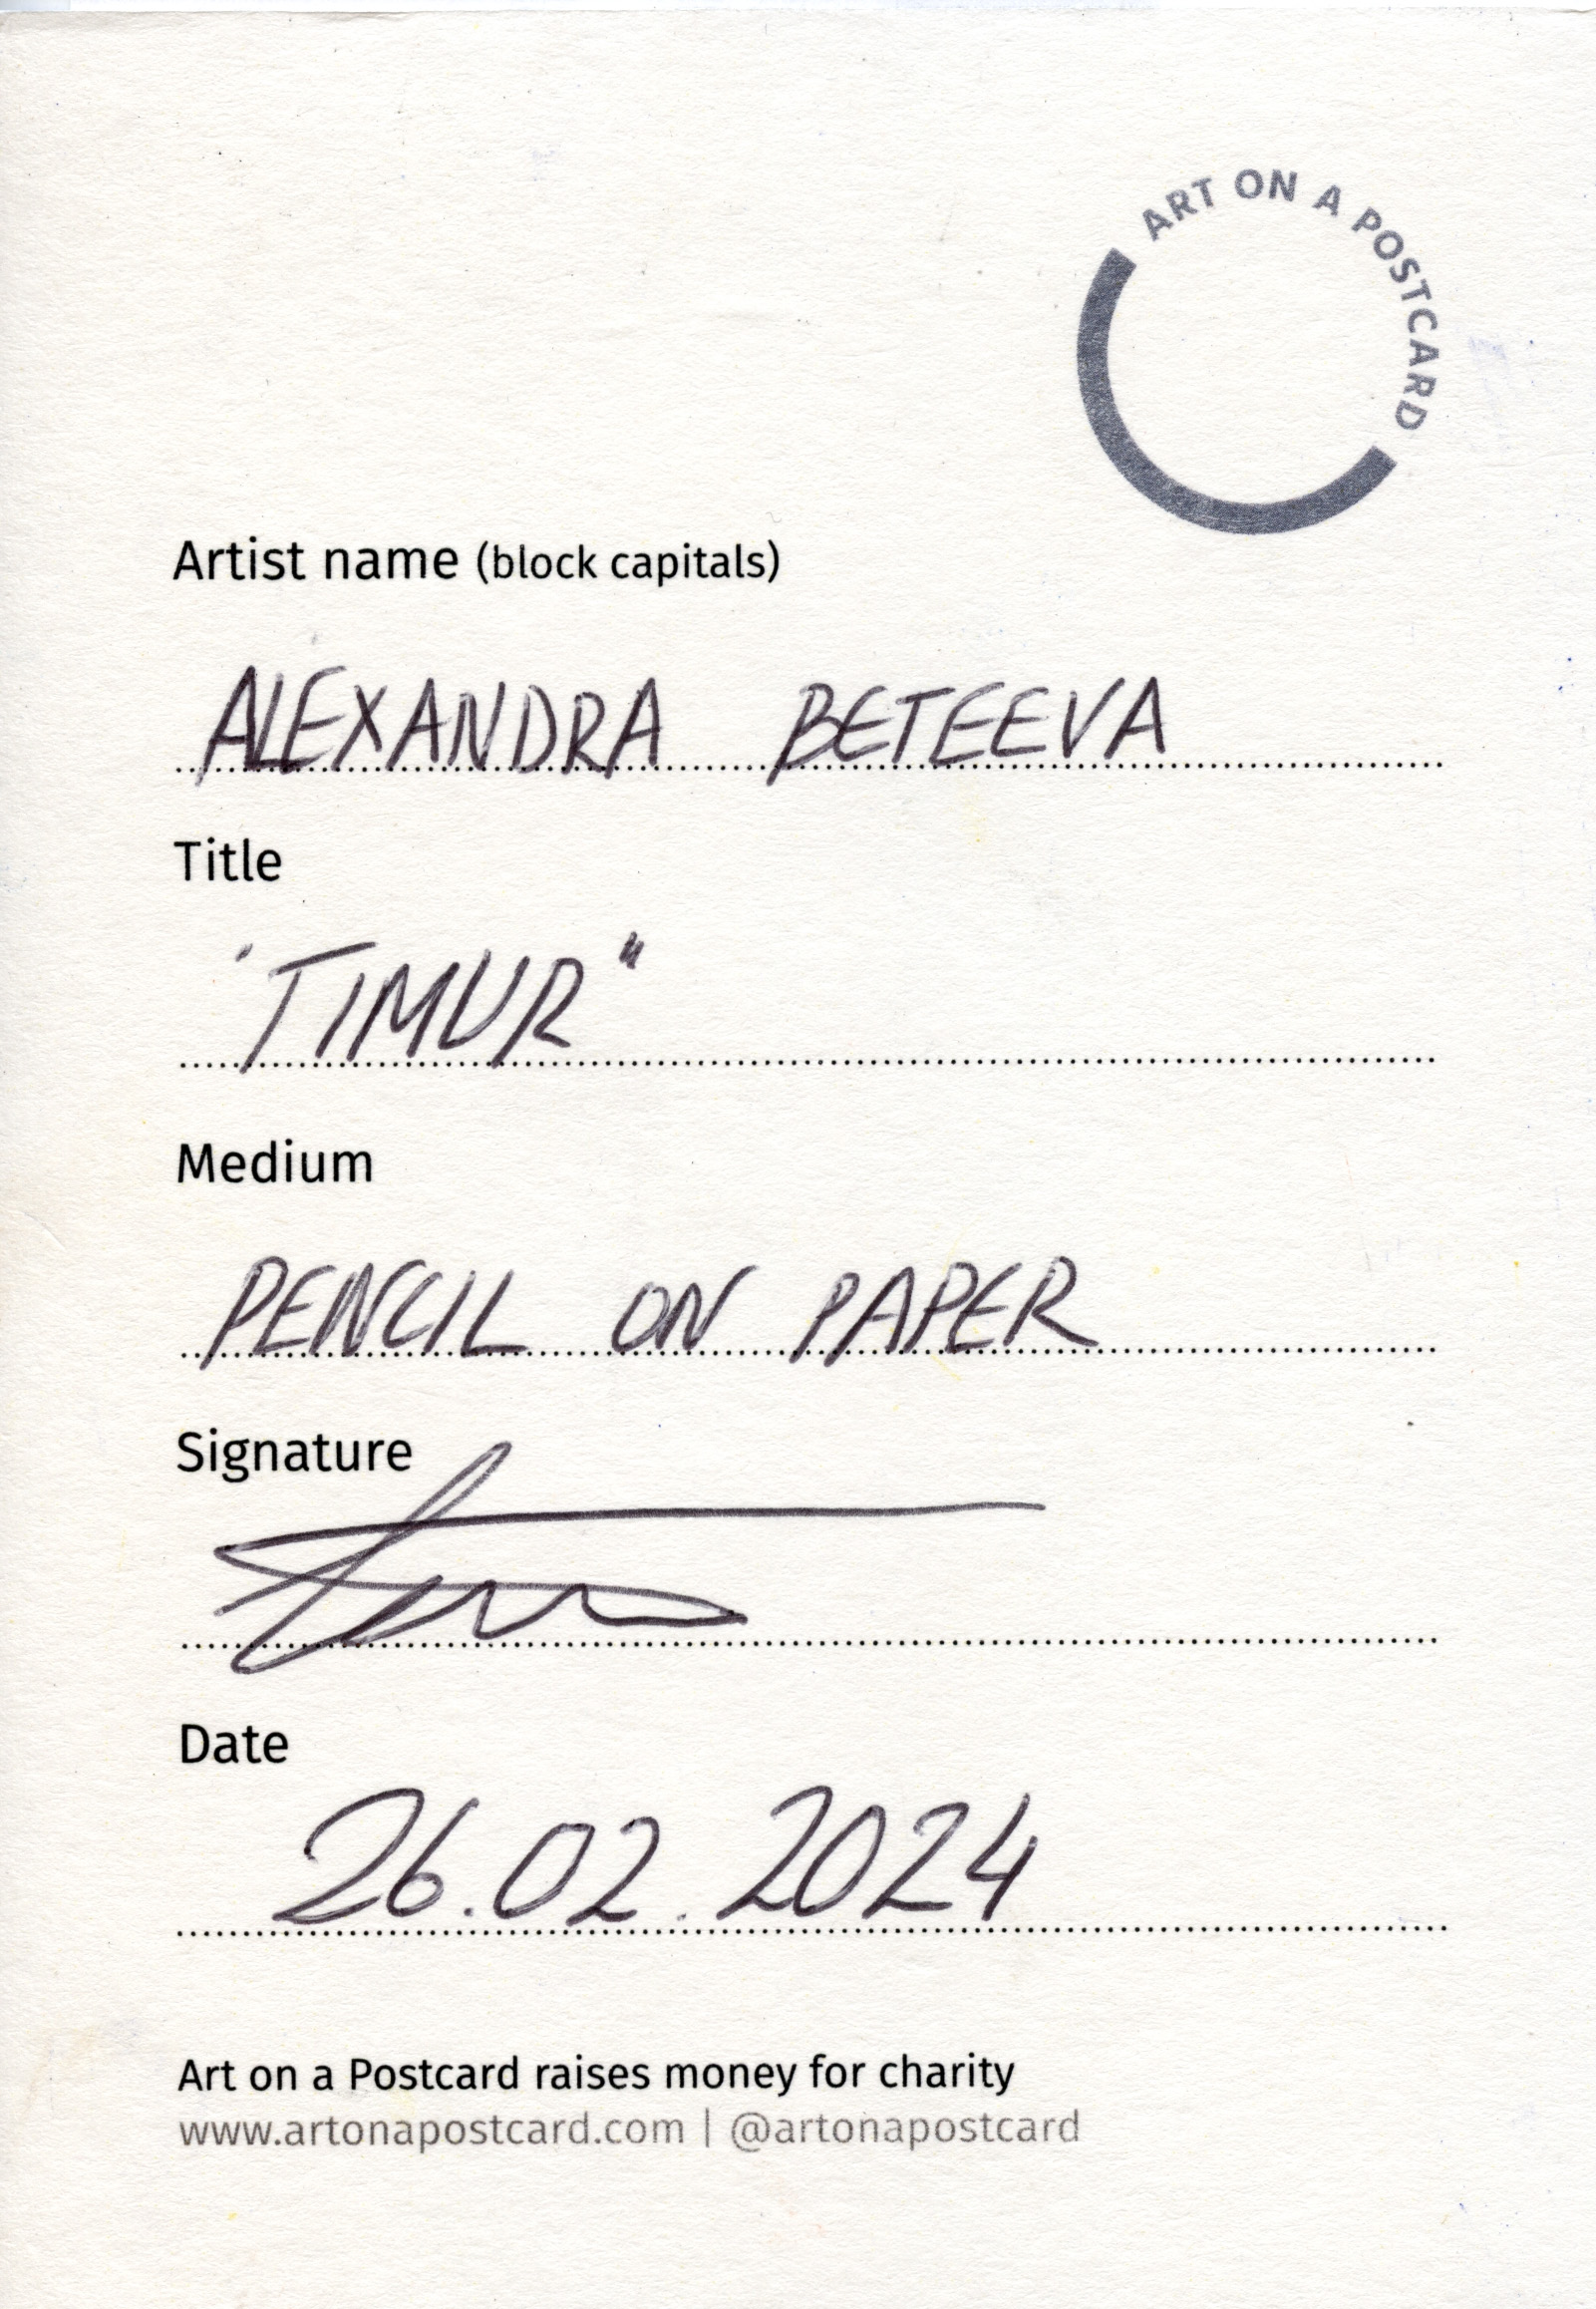 ART ON A POSTCARD
Artist name (block capitals)
ALEXANDRA BETEEVA
Title
"TIMUR"
Medium
PENCIL ON PAPER
Signature
Date
26.02.2024
Art on a Postcard raises money for charity
www.artonapostcard.com | @artonapostcard